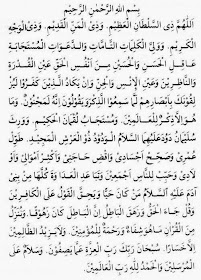 بِسْمِ اللَّهِ الرَّحْمَنِ الرَّحِيْمِ
اَللَّهُمَّ ذِى السُّلْطَانِ الْعَظِيْمِ. وَذِى الْمَنِّ الْقَدِيْمِ. وَذِى الْوَجْهِ
الْكَرِيْمِ. وَوَلِيِّ الْكَلِمَاتِ التَّامَّاتِ وَالدَّعَوَاتِ الْمُسْتَجَابَةِ
عَاقِلِ الْحَسَنِ وَالْحُسَيْنِ مِنْ اَنْفُسِ الْحَقِّ عَيْنِ الْقُدْرَةِ
وَالنَّاظِرِيْنَ وَعَيْنِ الْاِنْسِ وَالْجِنِّ وَاِنْ يَكَادُ الَّذِيْنَ كَفَرُوْا لَيُزْ
لِقُوْنَكَ بِاَبْصَارِهِمْ لَمَّا سَمِعُوا الذِّكْرَ وَيَقُوْلُوْنَ اِنَّهُ لَمَجْنُوْنٌ. وَمَا
هُوَ اِلَّا ذِكْرٌ لِلْعَالَمِيْنَ. وَمُسْتَجَابُ لُقْمَانَ الْحَكِيْمِ. وَوَرِثَ
سُلَيْمَانُ دَاوُدَ عَلَيْهِمَا السَّلَامُ الْوَدُوْدُ ذُو الْعَرْشِ الْمَجِيْدِ. طَوِّلْ
عُمْرِيْ وَصَحِّحْ اَجْسَادِيْ وَاقْضِ حَاجَتِيْ وَاَكْثِرْ اَمْوَالِيْ وَاَوْ
لَادِيْ وَحَبِّبْ لِلنَّاسِ اَجْمَعِيْنَ. وَتَبَاعَدِ الْعَدَاوَةَ كُلَّهَا مِنْ بَنِيْ
آدَمَ عَلَيْهِ السَّلَامُ مَنْ كَانَ حَيًّا وَيَحِقَّ الْقَوْلُ عَلَى الْكَافِرِيْنَ.
وَقُلْ جَاءَ الْحَقُّ وَزَهَقَ الْبَاطِلُ اِنَّ الْبَاطِلَ كَانَ زَهُوْقًا. وَنُنَزِّلُ
مِنَ الْقُرْآنِ مَا هُوَ شِفَاءٌ وَرَحْمَةٌ لِلْمُؤْمِنِيْنَ. وَلَا يَزِيْدُ الظَّالِمِيْنَ
اِلَّا خَسَارًا. سُبْحَانَ رَبِّكَ رَبِّ الْعِزَّةِ عَمَّا يَصِفُوْنَ. وَسَلَامٌ عَلَى
الْمُرْسَلِيْنَ وَالْحَمْدُ لِلَّهِ رَبِّ الْعَالَمِيْنَ